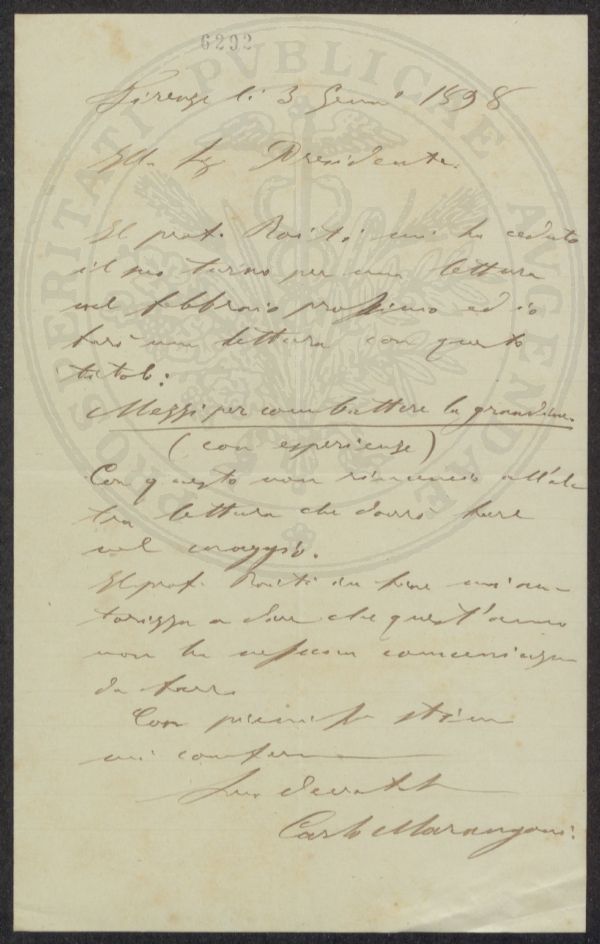 6292
PROSPERITATI PVBLICAE AVGENDAE
Firenze li 3 Genn° 1898
Ill. Sig. Presidente.
Il prof. Roiti mi ha ceduto
il suo turno per una lettura
nel febbraio prossimo ed io
farò una lettura con questo
titolo:
Mezzi per combattere la grandine.
(con esperienze)
Con questo non rinuncio all'al-
tra lettura che dovrò fare
nel maggio.
Il prof. Roiti mi au-
torizza a dire che quest'anno
non ha nessuna comunicazione
da fare.
Con piena stima
mi confermo
Suo devot
Carlo Marangoni.